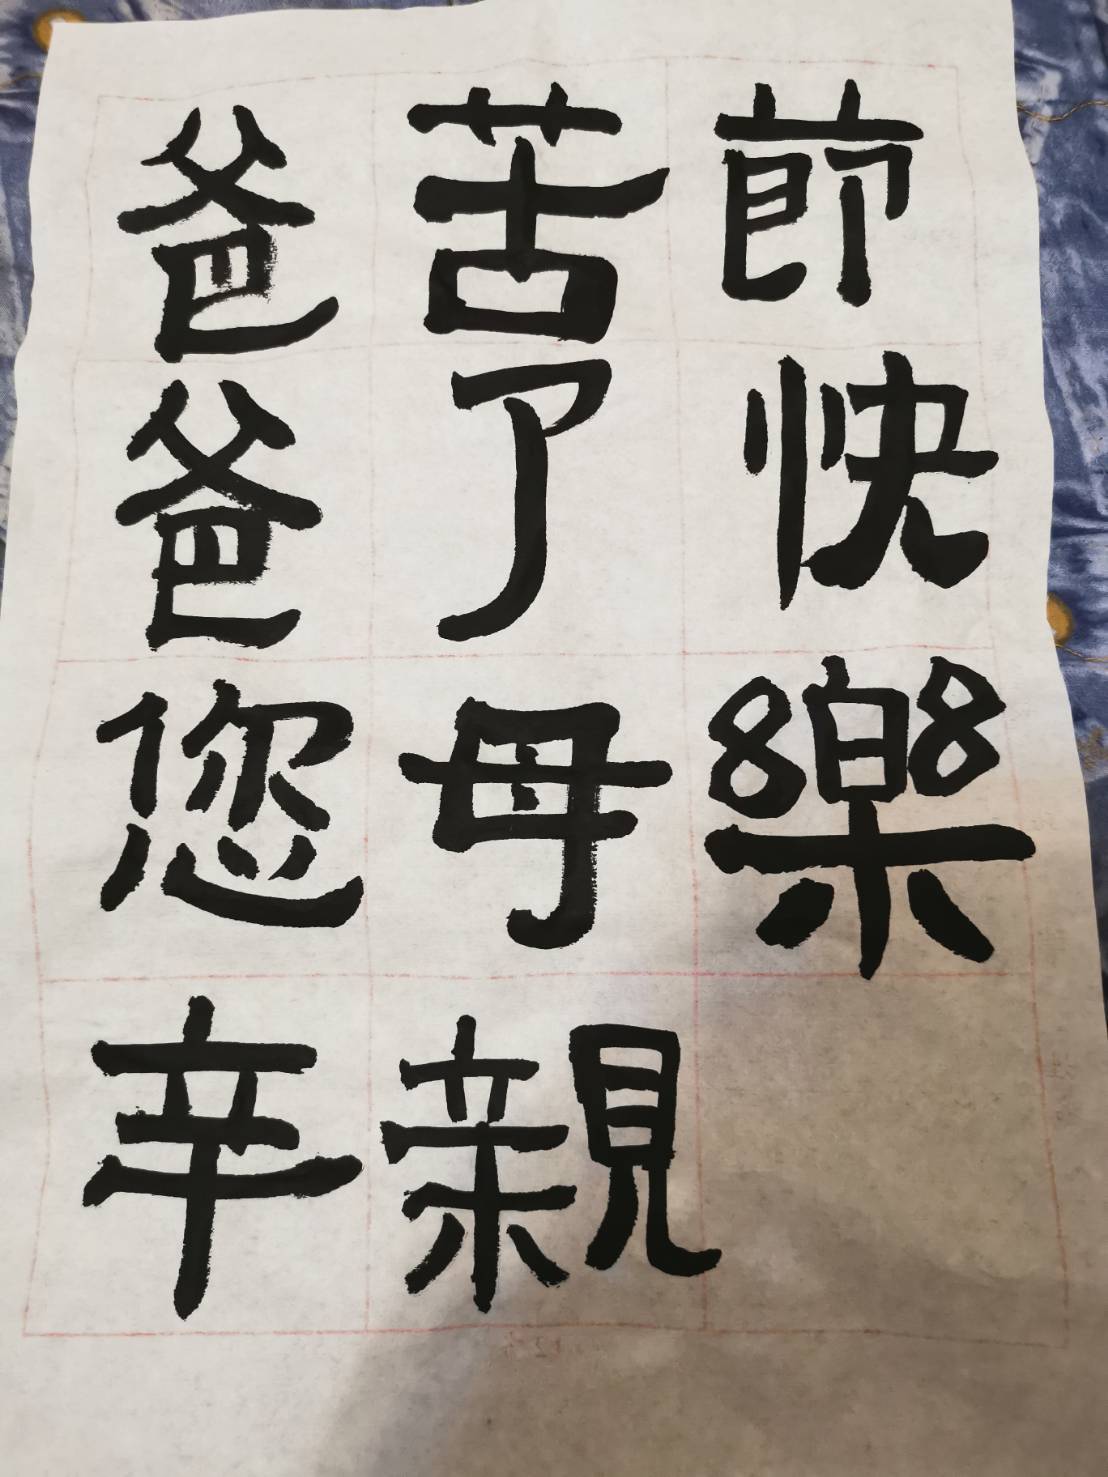 爸爸您辛
苦了母親
節快樂